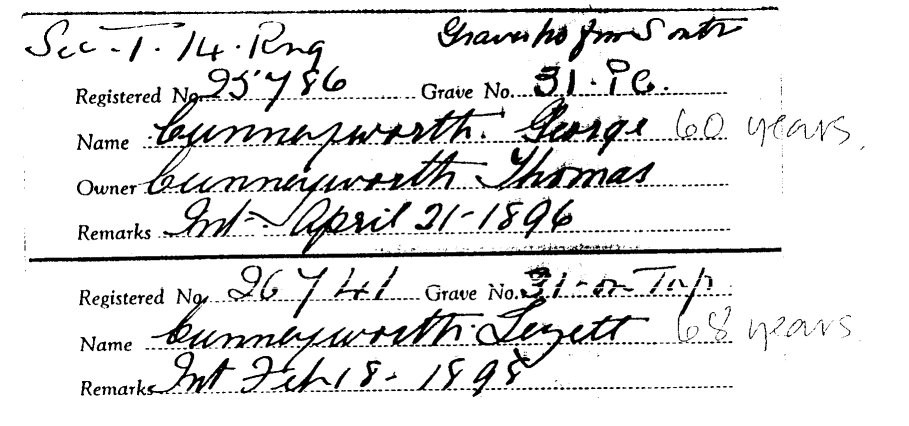 Sec-T. 14. Rng Graves no from South
Registered No. 25786 Grave No. 31. PC.
Name Cunneyworth. George 60 years
Owner Cunneyworth Thomas
Remarks Int- April 21-1896
Registered No. 26741 Grave No. 31-on Top
Name Cunneyworth. Lezett 68 years
Remarks Int Feb 18- 1898